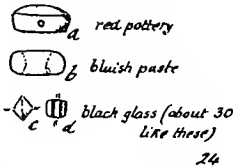 a red pottery
b bluish paste
c d black glass (about 30
like these)
24